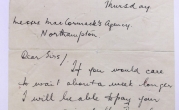 Thursday.
Messrs MacCormack's Agency
Northampton
Dear Sirs/
If you would care
to wait about a week longer
I will be able to pay your